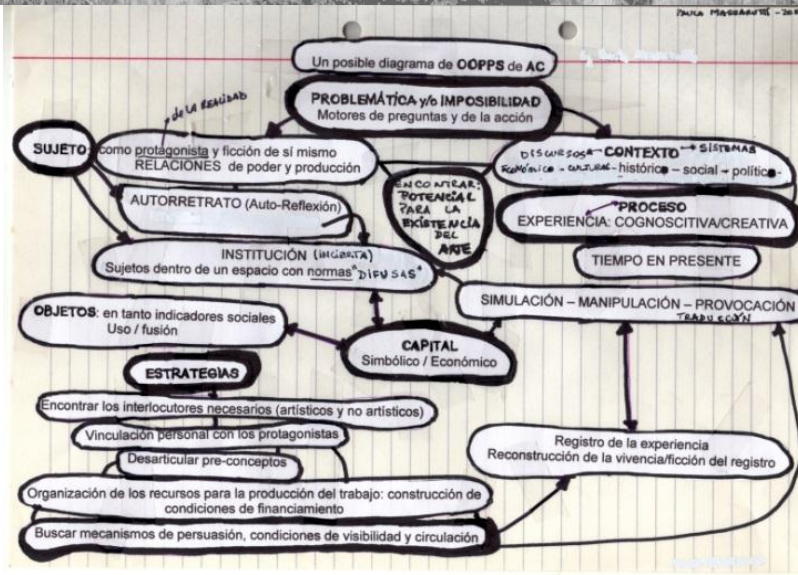 PAULA MASSARUTTI
Un posible diagrama de OOPPS de AC
PROBLEMÁTICA y/o IMPOSIBILIDAD
Motores de preguntas y de la acción
de LA REALIDAD
SUJETO: como protagonista y ficción de sí mismo
RELACIONES de poder y producción
DISCURSOS CONTEXTO SISTEMAS
ECONÓMICO - CULTURAL - histórico - social - político -
ENCONTRAR:
POTENCIAL
PARA LA
EXISTENCIA
DEL
ARTE
AUTORRETRATO (Auto-Reflexión)
PROCESO
EXPERIENCIA: COGNOSCITIVA/CREATIVA
INSTITUCIÓN (INCIERTA)
Sujetos dentro de un espacio con normas "DIFUSAS"
TIEMPO EN PRESENTE
SIMULACIÓN – MANIPULACIÓN – PROVOCACIÓN
TRADUCCIÓN
OBJETOS: en tanto indicadores sociales
Uso / fusión
CAPITAL
Simbólico / Económico
ESTRATEGIAS
Encontrar los interlocutores necesarios (artísticos y no artísticos)
Vinculación personal con los protagonistas
Desarticular pre-conceptos
Registro de la experiencia
Reconstrucción de la vivencia/ficción del registro
Organización de los recursos para la producción del trabajo: construcción de
condiciones de financiamiento
Buscar mecanismos de persuasión, condiciones de visibilidad y circulación